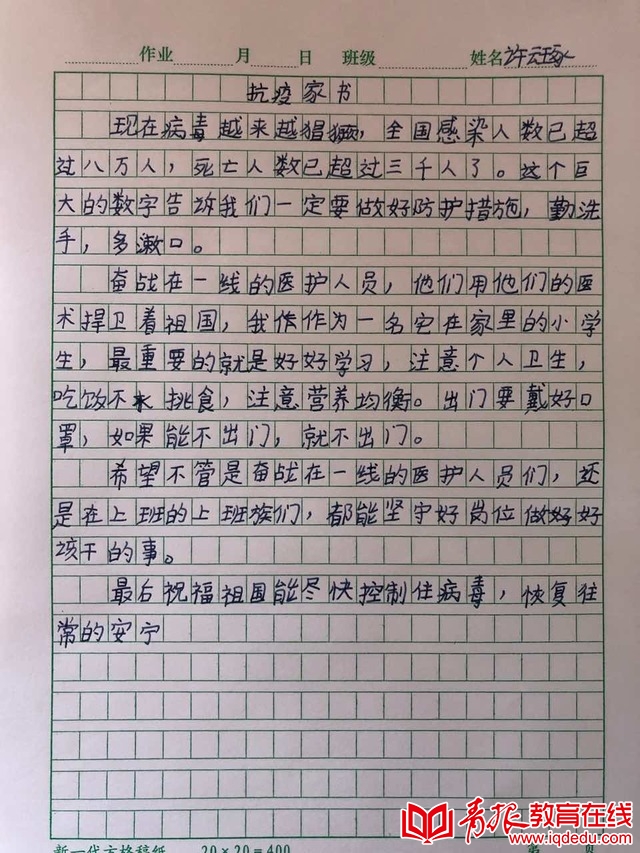 作业 月 日 班级 姓名 许云琢
抗疫家书
现在病毒越来越猖獗,全国感染人数已超
过八万人,死亡人数已超过三千人了。这个巨
大的数字告诉我们一定要做好防护措施,勤洗
手,多漱口。
奋战在一线的医护人员,他们用他们的医
术捍卫着祖国,我作作为一名宅在家里的小学
生,最重要的就是好好学习,注意个人卫生,
吃饭不挑食,注意营养均衡。出门要戴好口
罩,如果能不出门,就不出门。
希望不管是奋战在一线的医护人员们,还
是在上班的上班族们,都能坚守好岗位做好好
该干的事。
最后祝福祖国能尽快控制住病毒,恢复往
常的安宁
新一代方格稿纸 20×20=400 第 页
青报教育在线
www.iqdedu.com